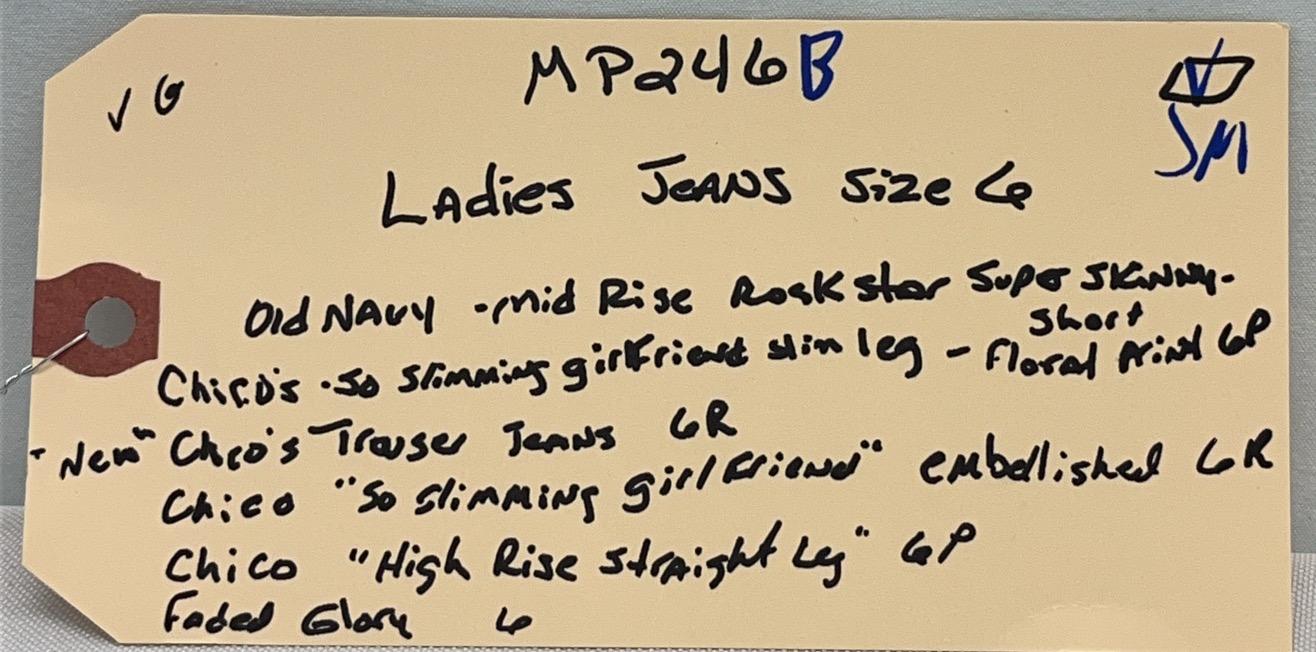 MP246B
√ G
SM
Ladies Jeans Size 6
Old Navy - Mid Rise Rockstar Super Skinny - Short
Chico's - So Slimming girlfriend slim leg - floral print 6P
"New" Chico's Trouser Jeans 6R
Chico "So Slimming girlfriend" embellished 6R
Chico "High Rise Straight Leg" 6P
Faded Glory 6